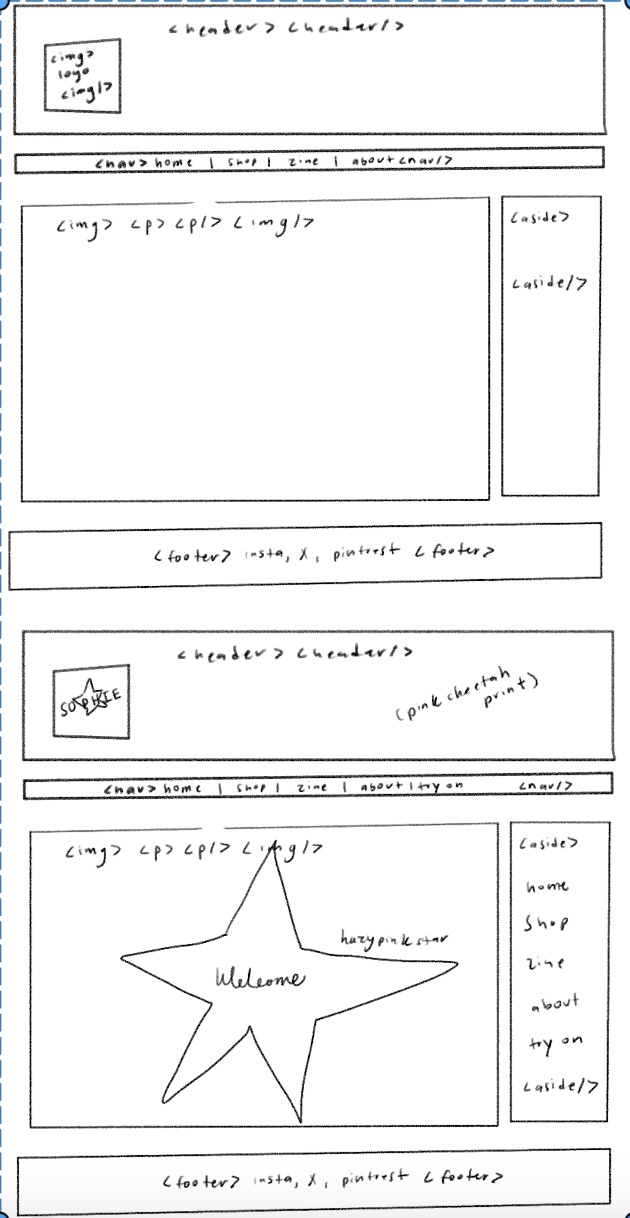 <header> <header/>
<img>
logo
<img/>
<nav> home | shop | zine | about <nav/>
<img> <p> <p/> <img/>
<aside>
<aside/>
<footer> insta, X, pintrest <footer>
<header> <header/>
SOPHIE
(pink cheetah
print)
<nav> home | shop | zine | about | try on <nav/>
<img> <p> <p/> <img/>
hazy pink star
Welcome
<aside>
home
shop
zine
about
try on
<aside/>
<footer> insta, X, pintrest <footer>